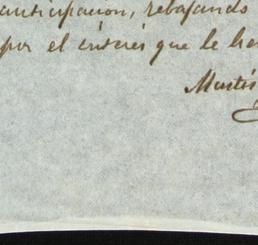 anticipacion, rebajando
por el interes que le ha
Martí